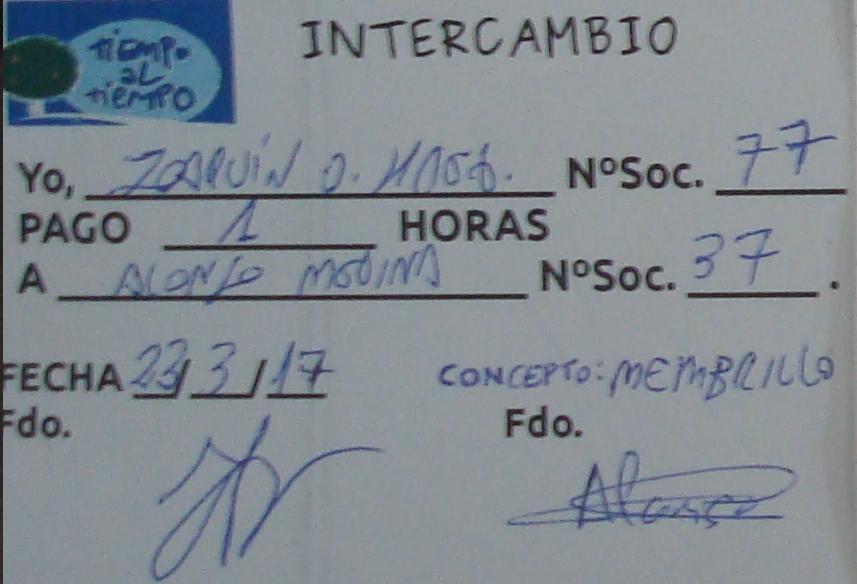 tiempo
AL
tiempo
INTERCAMBIO
Yo, JOAQUÍN O. NºSoc. 77
PAGO 1 HORAS
A ALONSO MEDINA NºSoc. 37.
FECHA 23/3/17 CONCEPTO: MEMBRILLO
Fdo. Fdo.
Alonso